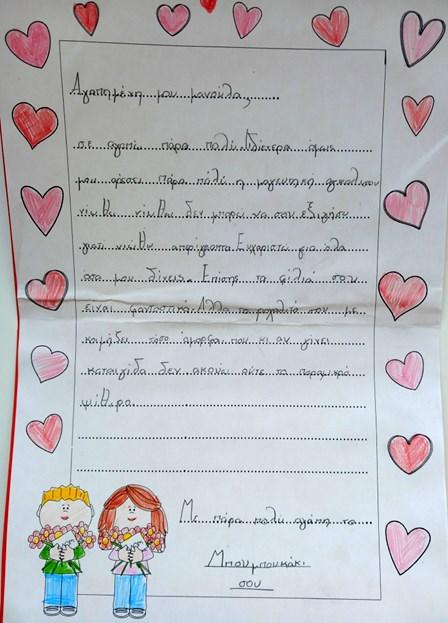 Αγαπημένη μου μανούλα,
σε αγαπώ πάρα πολύ. Ιδιέτερα όμως
μου αρέσει πάρα πολύ η μαγευτική αγκαλιά σου
νιώθω νιώθω δεν μπορώ να σου εξηγήσω
γιατί νιώθω απερίγραπτα. Ευχαριστώ για όλα
οσα μου δίνεις. Επίσης τα φιλιά σου
είναι φανταστικά. Αλλά το ροχαλιτό σου με
κοιμίζει τόσο όμορφα που κι αν γίνει
καταιγίδα δεν ακούω ούτε το παραμικρό
ψίθυρο.
Με πάρα πολύ αγάπη το
Μπουμπουκάκι
σου